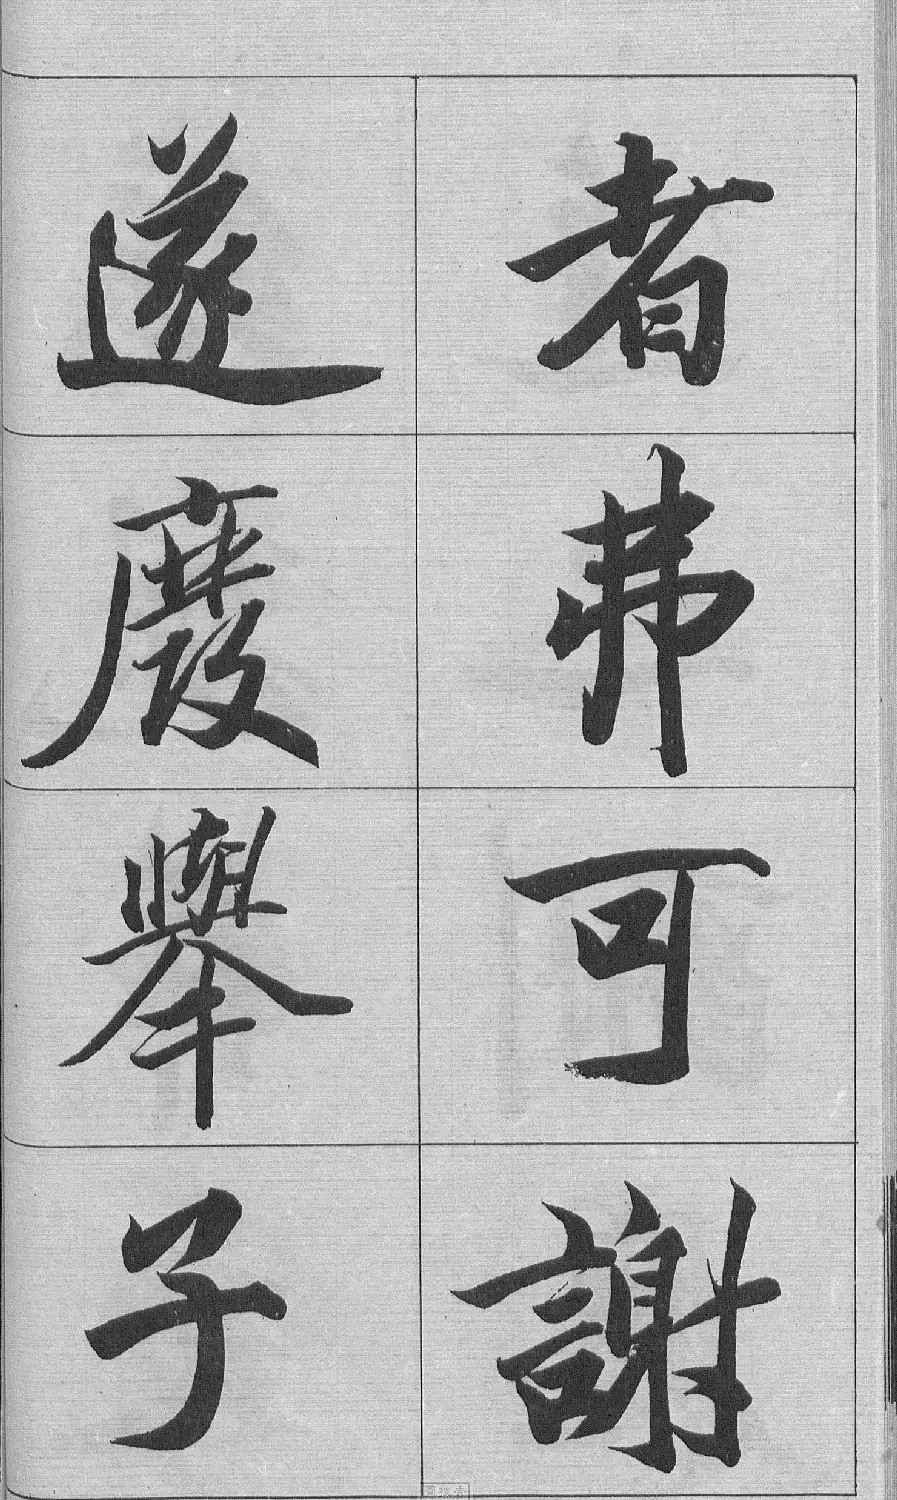 者弗可謝
遂廢舉子